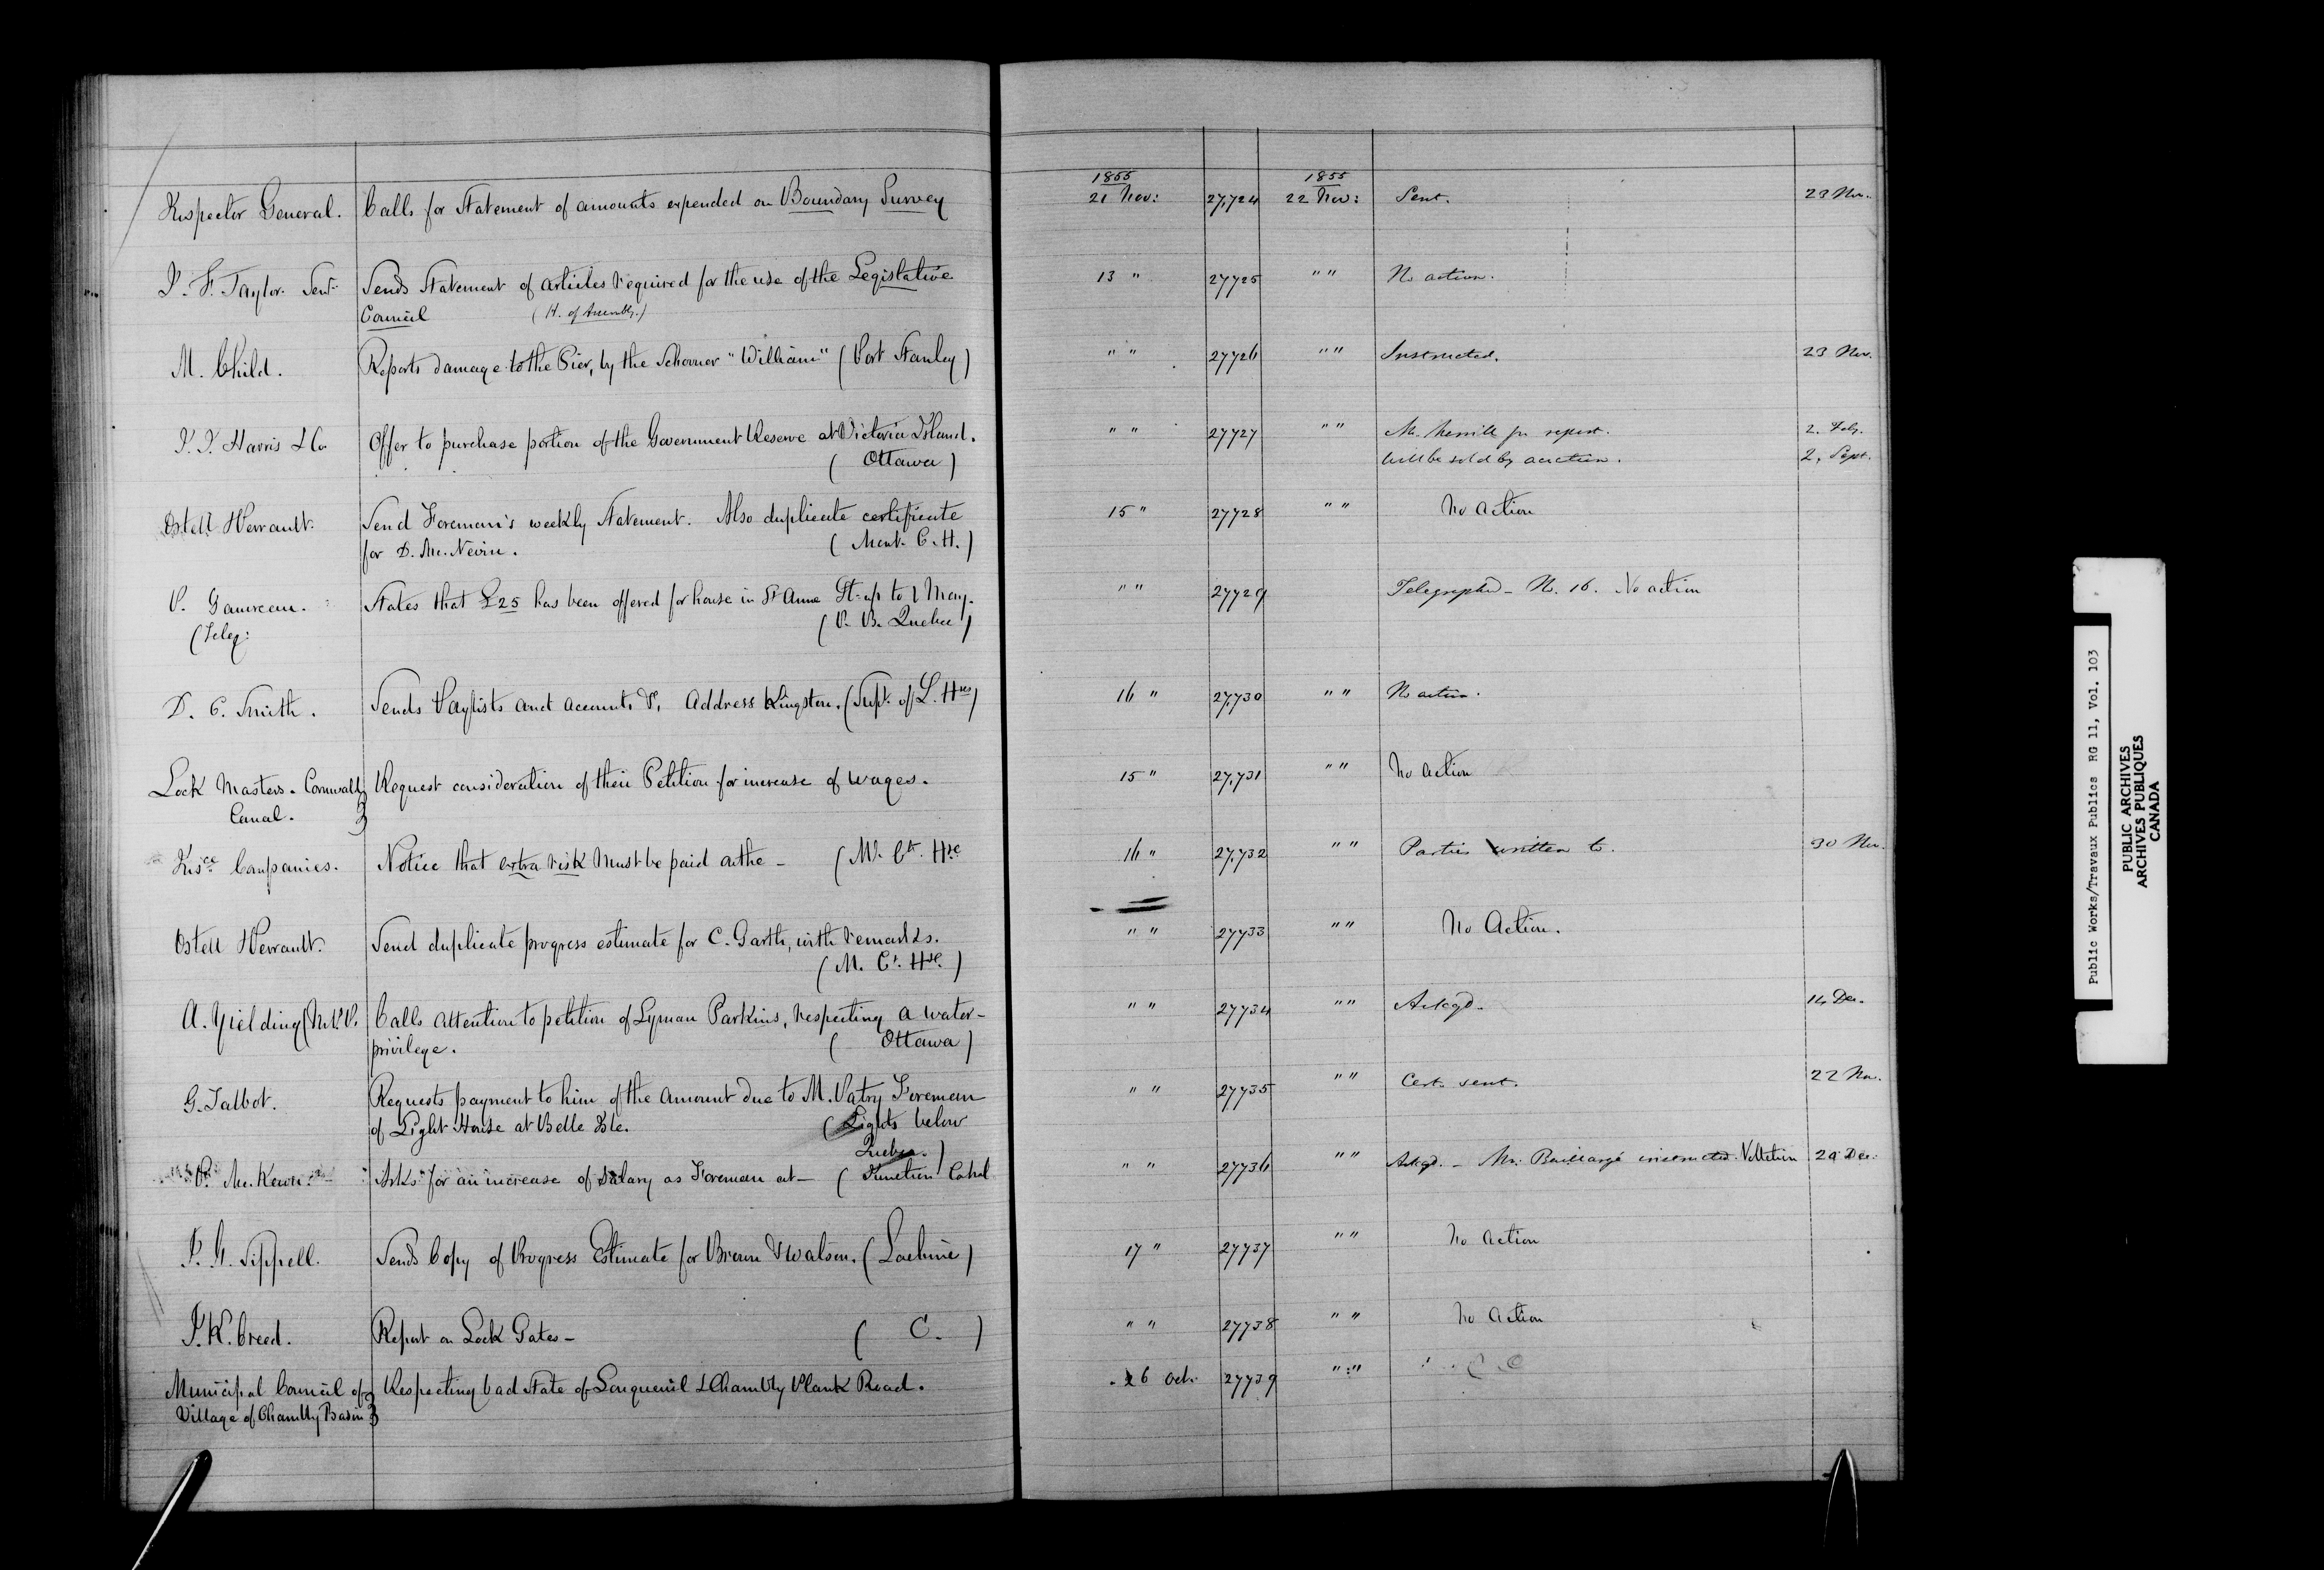 1855 1855
Inspector General. Calls for Statement of amounts expended on Boundary Survey 21 Nov: 27,724 22 Nov: Sent. 23 Nov.
J. F. Taylor. Senr. Sends Statement of articles required for the use of the Legislative 13 " 27725 " " No action.
Council (H. of Assembly.)
M. Child. Reports damage to the Pier, by the Schooner "William" (Port Stanley) " " 27726 " " Instructed. 23 Nov.
J. J. Harris & Co. Offer to purchase portion of the Government Reserve at Victoria Island. " " 27727 " " Mr. Merrill for report. 2. Feby.
(Ottawa) Will be sold by auction. 2, Sept.
Ostell & Perrault. Send Foreman's weekly Statement. Also duplicate certificate 15 " 27728 " " No action
for D. Mc. Nevin. (Mont. C. H.)
P. Gauvreau. States that £25 has been offered for house in St Anne St. up to 1 May. " " 27729 Telegraphd - No. 16. No action
(Teleg: (P. B. Quebec)
D. C. Smith. Sends Paylists and accounts &, Address Kingston. (Supt. of L. Hses) 16 " 27,730 " " No action.
Lock Masters. Cornwall } Request consideration of their Petition for increase of wages. 15 " 27,731 " " No action
Canal. }
Insce Companies. Notice that extra risk must be paid on the - (M. Ct. Hse 16 " 27,732 " " Parties written to. 30 Nov.
Ostell & Perrault. Send duplicate progress estimate for C. Garth, with remarks. " " 27733 " " No Action.
(M. Ct. Hse.)
A. Yielding (M.P.P. Calls attention to petition of Lyman Parkins, respecting a water- " " 27734 " " Ackgd. 14 Dec.
privilege. (Ottawa)
G. Talbot. Requests payment to him of the amount due to M. Vatry Foreman " " 27735 " " Cert. sent. 22 Nov.
of Light House at Belle Isle. (Lights below
Quebec.)
P. Mc. Keon. Asks for an increase of salary as Foreman at - (Junction Canal " " 27736 " " Ackgd. - Mr. Baillargé instructed. 29 Dec.
J. G. Sippell. Sends Copy of Progress Estimate for Brown & Watson. (Lachine) 17 " 27737 " " No action
J. K. Creed. Report on Lock Gates - (C.) " " 27738 " " No action
Municipal Council of } Respecting bad State of Longueuil & Chambly Plank Road. 26 Oct. 27739 " "
Village of Chambly Basin }
Public Works/Travaux Publics RG 11, Vol. 103
PUBLIC ARCHIVES
ARCHIVES PUBLIQUES
CANADA